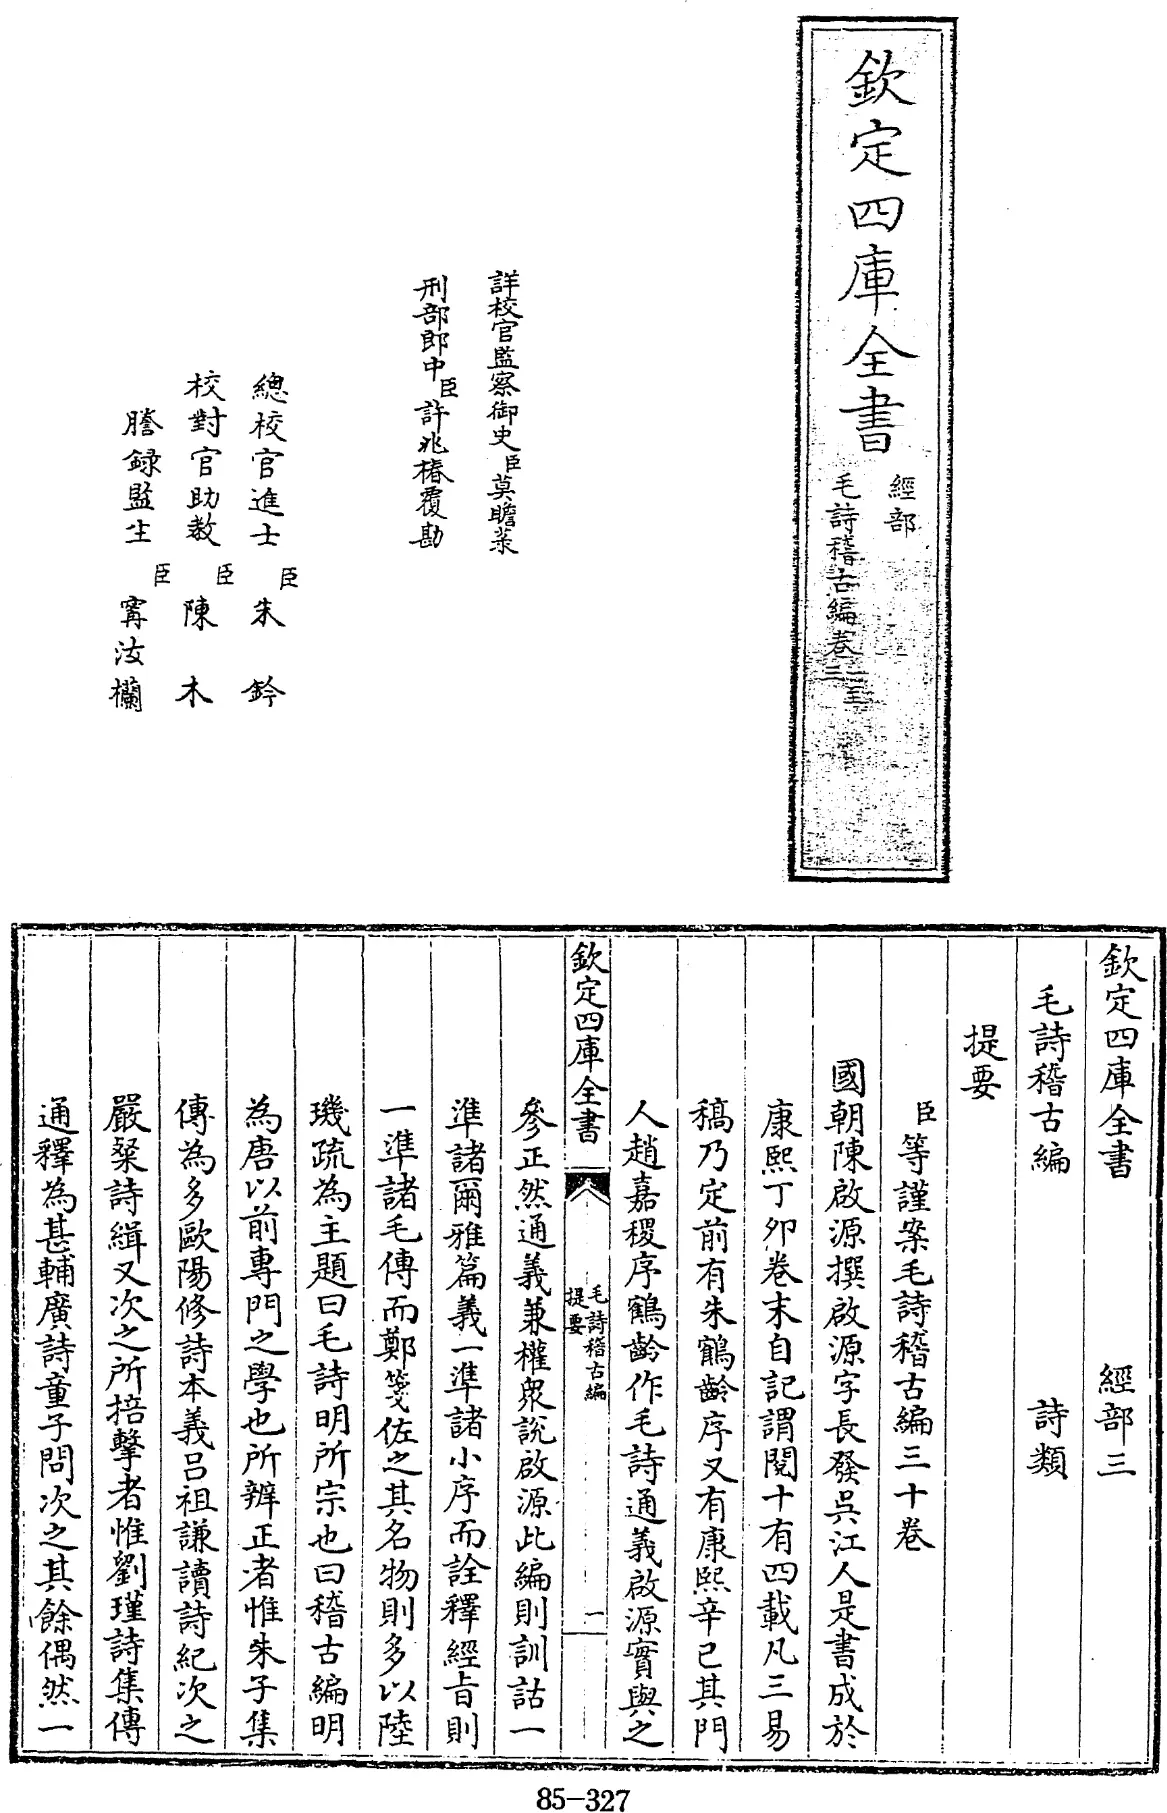 欽定四庫全書
經部
毛詩稽古編卷一至
三
詳校官監察御史臣莫瞻菉
刑部郎中臣許兆椿覆勘
總校官進士臣朱鈐
校對官助教臣陳木
謄錄監生臣甯汝欄
欽定四庫全書 經部三
毛詩稽古編 詩類
提要
臣等謹案毛詩稽古編三十卷
國朝陳啟源撰啟源字長發吳江人是書成於
康熙丁卯卷末自記謂閱十有四載凡三易
稿乃定前有朱鶴齡序又有康熙辛已其門
人趙嘉稷序鶴齡作毛詩通義啟源實與之
欽定四庫全書
毛詩稽古編
提要
一
參正然通義兼權衆說啟源此編則訓詁一
準諸爾雅篇義一準諸小序而詮釋經旨則
一準諸毛傳而鄭箋佐之其名物則多以陸
璣疏為主題曰毛詩明所宗也曰稽古編明
為唐以前專門之學也所辨正者惟朱子集
傳為多歐陽修詩本義呂祖謙讀詩紀次之
嚴粲詩緝又次之所掊擊者惟劉瑾詩集傳
通釋為甚輔廣詩童子問次之其餘偶然一
85-327